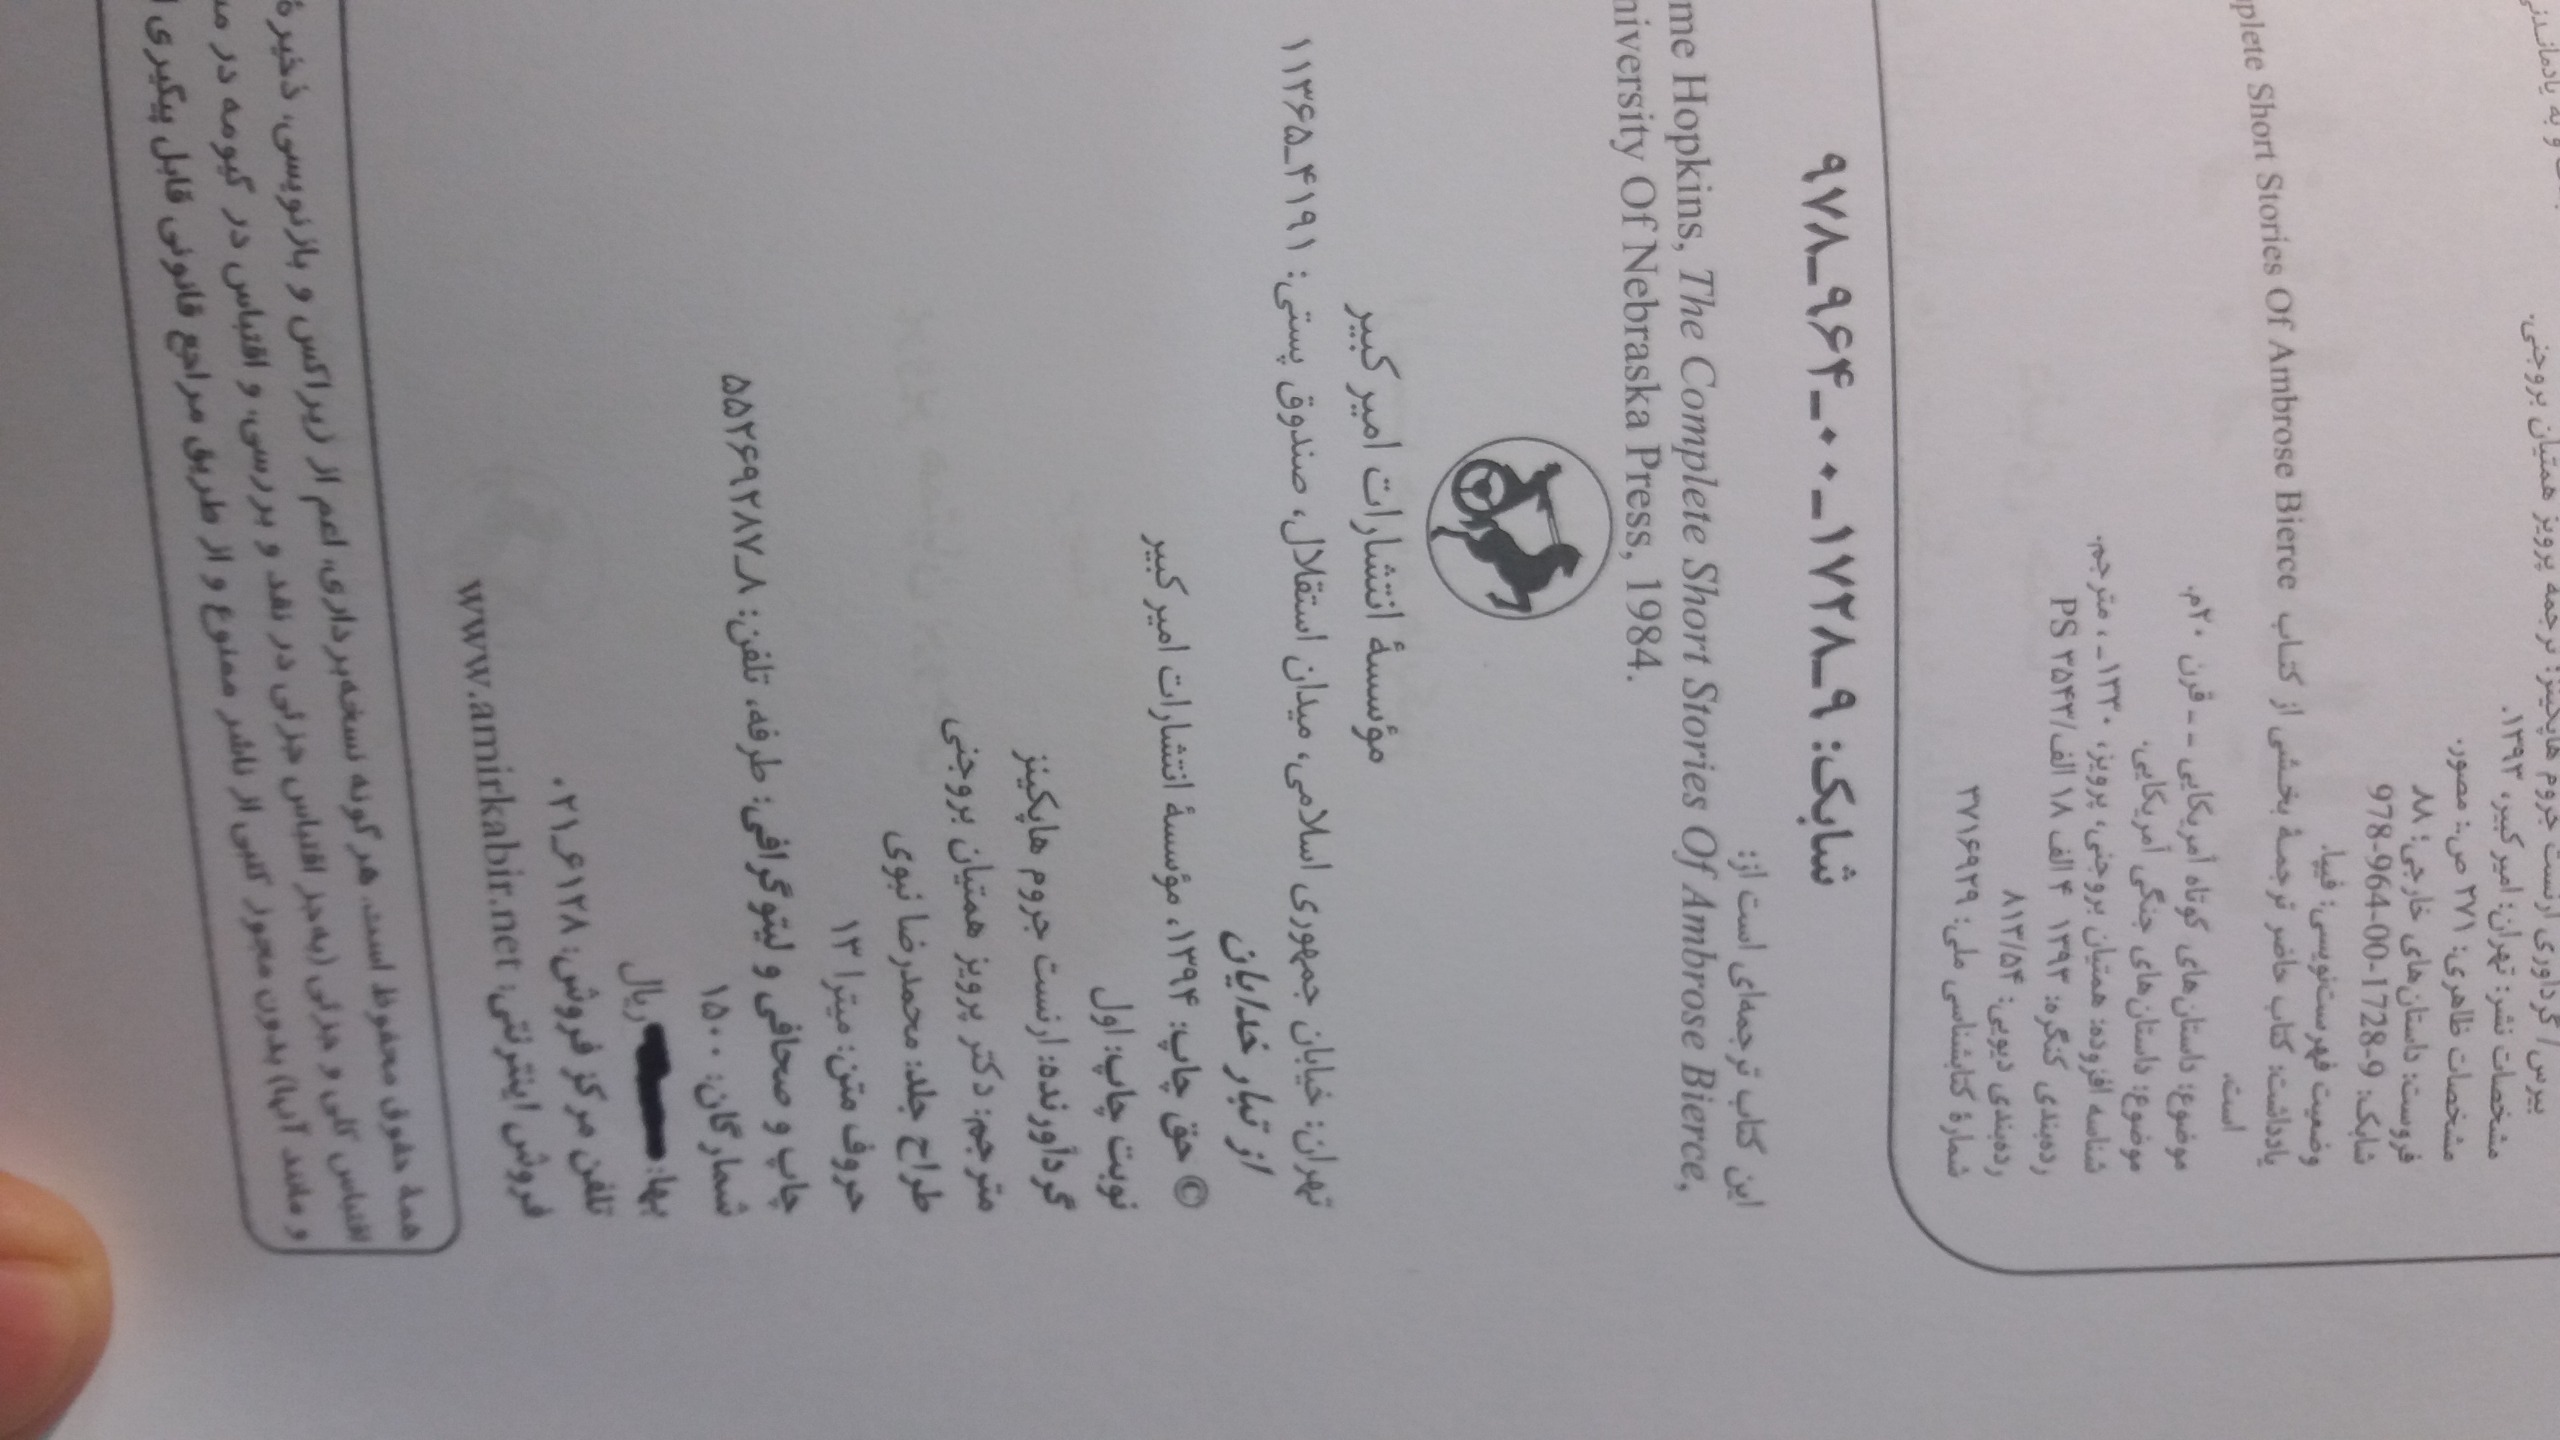 و به یادماندنی
بیرس / گردآوری ارنست جروم هاپکینز؛ ترجمه پرویز همتیان بروجنی.
مشخصات نشر: تهران: امیرکبیر، ۱۳۹۳.
مشخصات ظاهری: ۲۷۱ ص.: مصور.
فروست: داستان‌های خارجی؛ ۸۸
شابک: 978-964-00-1728-9
وضعیت فهرست‌نویسی: فیپا.
یادداشت: کتاب حاضر ترجمهٔ بخشی از کتاب plete Short Stories Of Ambrose Bierce
است.
موضوع: داستان‌های کوتاه آمریکایی -- قرن ۲۰م.
موضوع: داستان‌های جنگی آمریکایی.
شناسه افزوده: همتیان بروجنی، پرویز، ۱۳۳۰ـ ، مترجم.
رده‌بندی کنگره: ۱۳۹۳ ۴الف ۱۸الف/PS ۳۵۴۳
رده‌بندی دیویی: ۸۱۳/۵۴
شمارهٔ کتابشناسی ملی: ۳۷۱۶۹۲۹
شابک: ۹ـ۱۷۲۸ـ۰۰ـ۹۶۴ـ۹۷۸
این کتاب ترجمه‌ای است از:
me Hopkins, The Complete Short Stories Of Ambrose Bierce,
niversity Of Nebraska Press, 1984.
مؤسسهٔ انتشارات امیرکبیر
تهران: خیابان جمهوری اسلامی، میدان استقلال، صندوق پستی: ۴۱۹۱ـ۱۱۳۶۵
از تبار خدایان
© حق چاپ: ۱۳۹۴، مؤسسهٔ انتشارات امیرکبیر
نوبت چاپ: اول
گردآورنده: ارنست جروم هاپکینز
مترجم: دکتر پرویز همتیان بروجنی
طراح جلد: محمدرضا نبوی
حروف متن: میترا ۱۳
چاپ و صحافی و لیتوگرافی: طرفه، تلفن: ۸ـ۵۵۲۶۹۲۸۷
شمارگان: ۱۵۰۰
بها: ریال
تلفن مرکز فروش: ۶۱۲۸ـ۰۲۱
فروش اینترنتی: www.amirkabir.net
همهٔ حقوق محفوظ است. هرگونه نسخه‌برداری، اعم از زیراکس و بازنویسی، ذخیرهٔ
اقتباس کلی و جزئی (به‌جز اقتباس جزئی در نقد و بررسی، و اقتباس در گیومه در
و مانند آنها) بدون مجوز کتبی از ناشر ممنوع و از طریق مراجع قانونی قابل پیگیری